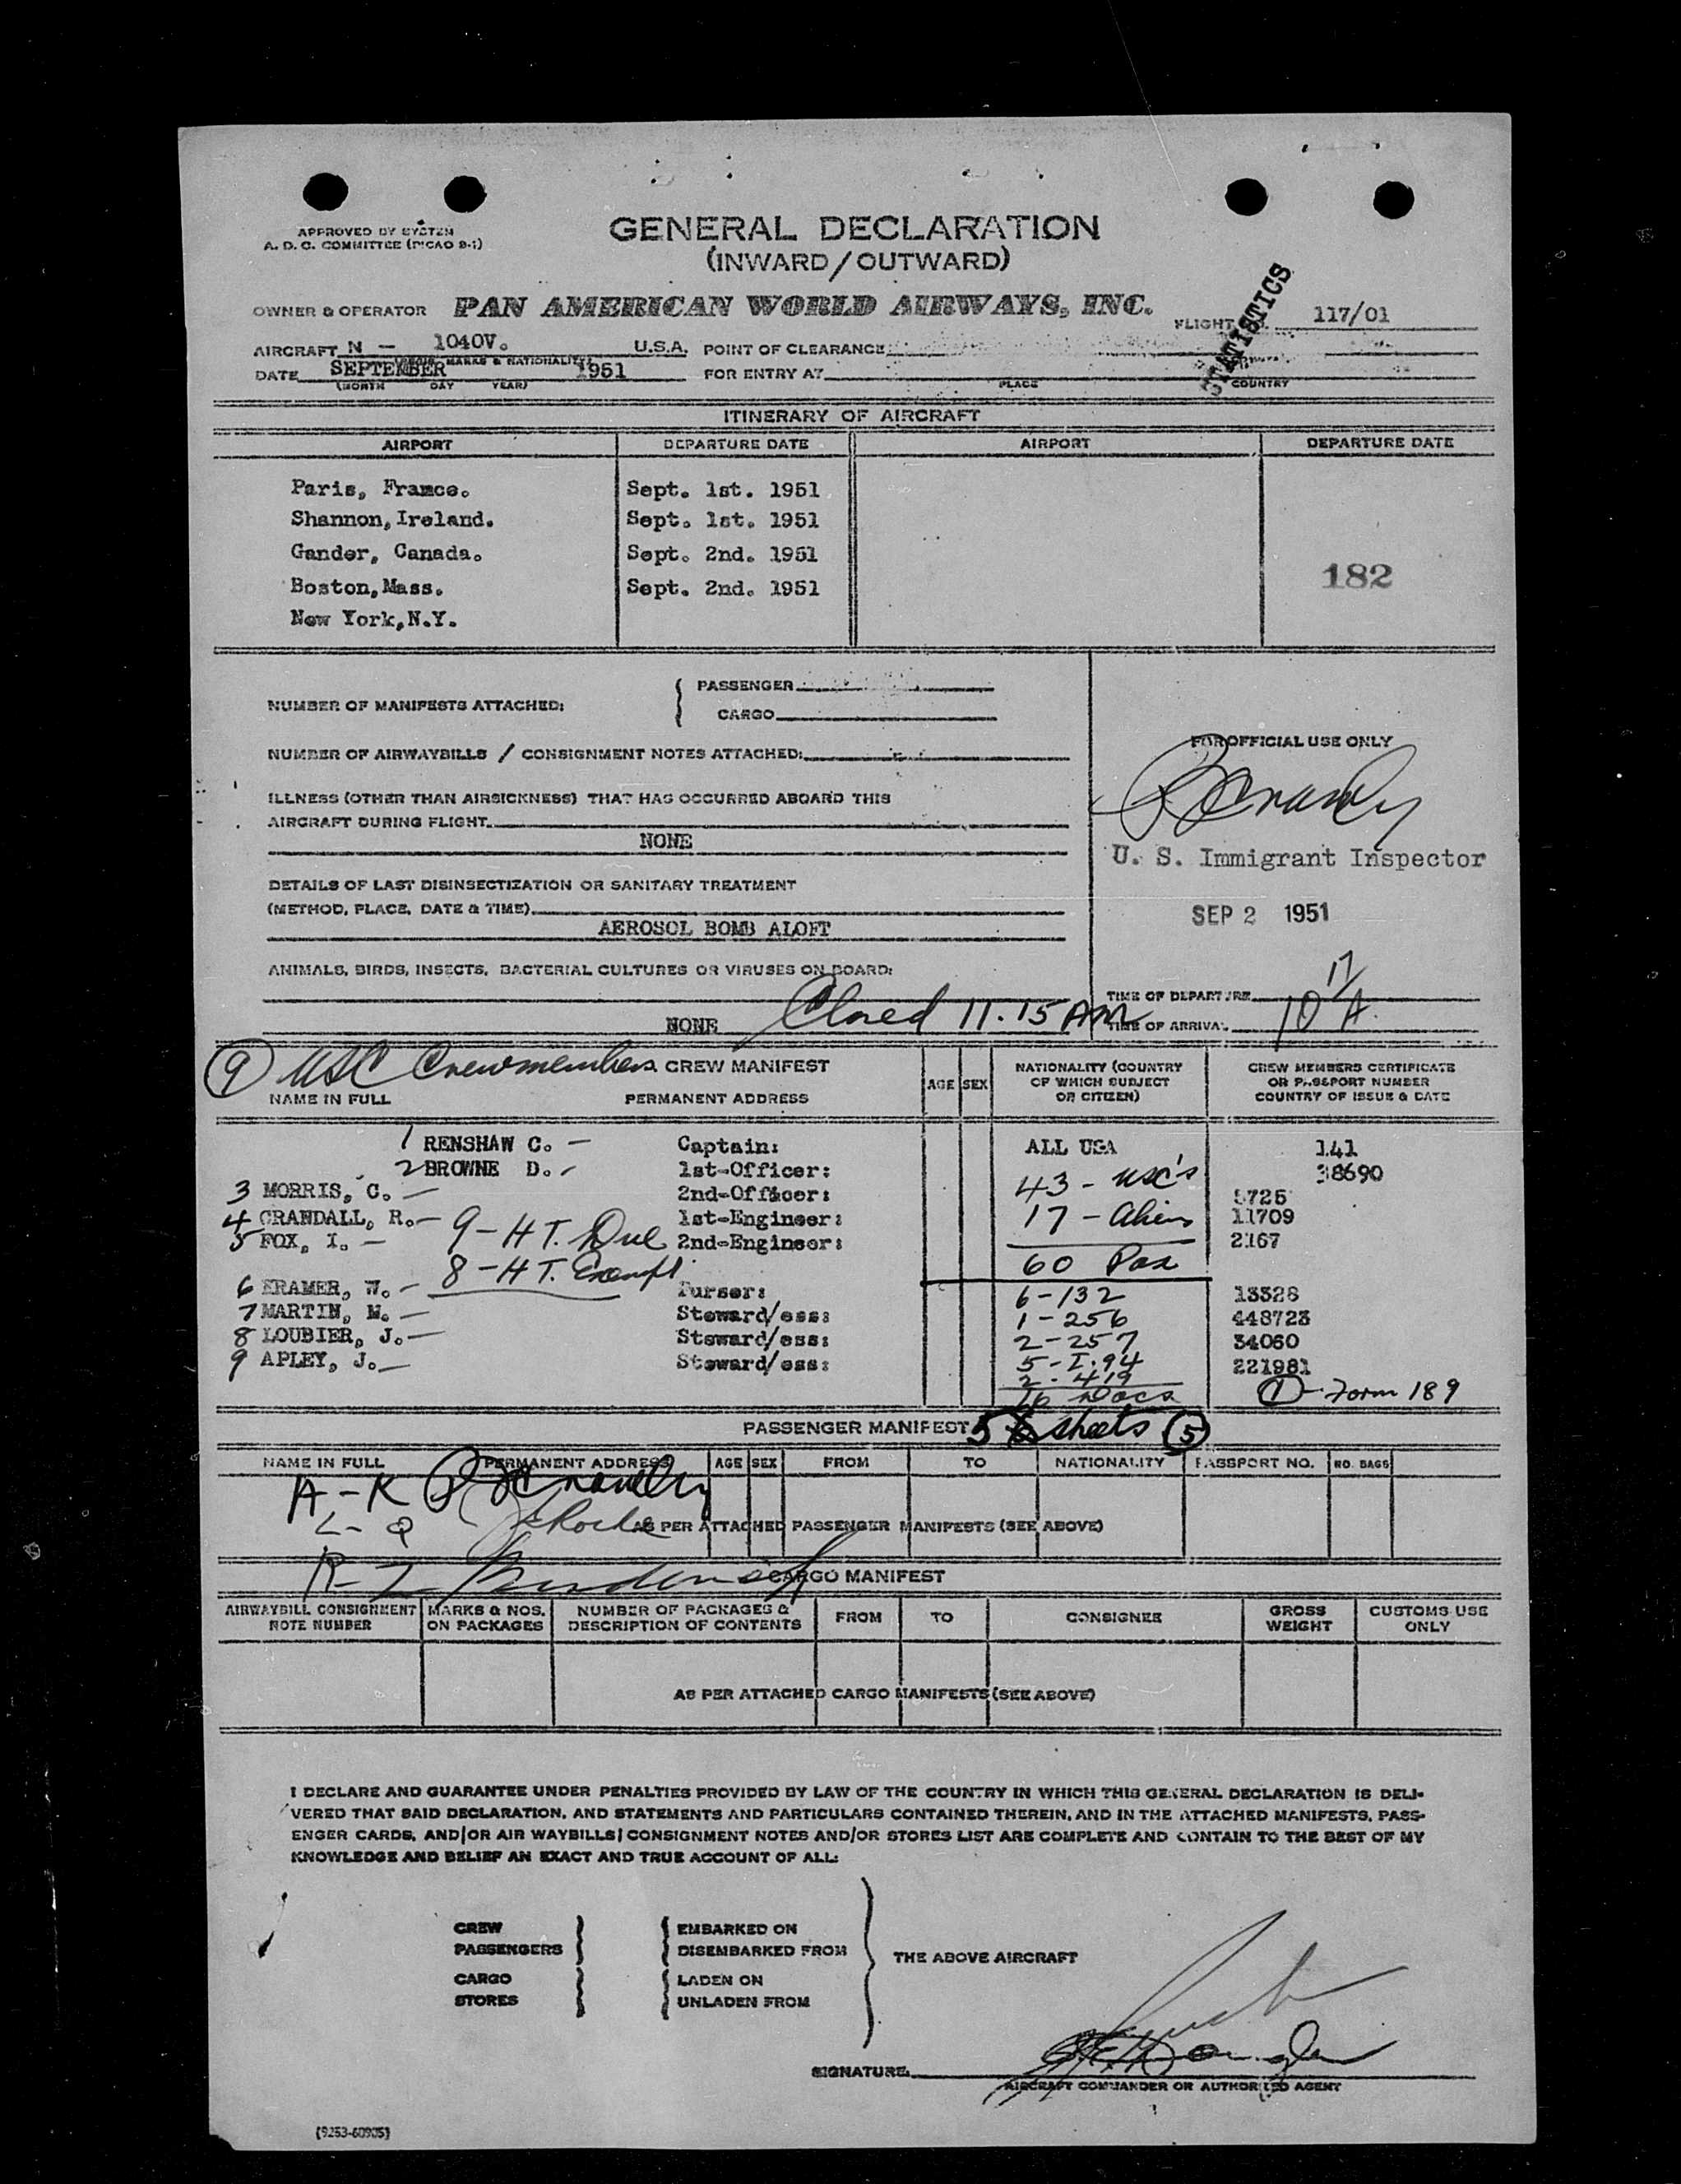 APPROVED BY SYSTEM
A. D. C. COMMITTEE (PICAO 9-1)
GENERAL DECLARATION
(INWARD/OUTWARD)
OWNER & OPERATOR PAN AMERICAN WORLD AIRWAYS, INC.
FLIGHT 117/01
STATISTICS
AIRCRAFT N - 1040V. U.S.A. POINT OF CLEARANCE
MARKS & NATIONALITY
DATE SEPTEMBER 1951 FOR ENTRY AT
(MONTH DAY YEAR) PLACE COUNTRY
ITINERARY OF AIRCRAFT
AIRPORT DEPARTURE DATE AIRPORT DEPARTURE DATE
Paris, France. Sept. 1st. 1951
Shannon, Ireland. Sept. 1st. 1951
Gander, Canada. Sept. 2nd. 1951
Boston, Mass. Sept. 2nd. 1951
182
New York, N.Y.
NUMBER OF MANIFESTS ATTACHED: PASSENGER
CARGO
NUMBER OF AIRWAYBILLS / CONSIGNMENT NOTES ATTACHED:
FOR OFFICIAL USE ONLY
ILLNESS (OTHER THAN AIRSICKNESS) THAT HAS OCCURRED ABOARD THIS
AIRCRAFT DURING FLIGHT
NONE
U. S. Immigrant Inspector
DETAILS OF LAST DISINSECTIZATION OR SANITARY TREATMENT
(METHOD, PLACE, DATE & TIME)
SEP 2 1951
AEROSOL BOMB ALOFT
ANIMALS, BIRDS, INSECTS, BACTERIAL CULTURES OR VIRUSES ON BOARD:
TIME OF DEPARTURE
NONE Closed 11.15 AM TIME OF ARRIVAL 10 17 A.
9 USC Crewmembers CREW MANIFEST
NAME IN FULL PERMANENT ADDRESS AGE SEX
NATIONALITY (COUNTRY
OF WHICH SUBJECT
OR CITIZEN)
CREW MEMBERS CERTIFICATE
OR PASSPORT NUMBER
COUNTRY OF ISSUE & DATE
1 RENSHAW C. - Captain: ALL USA 141
2 BROWNE D. - 1st-Officer: 38690
3 MORRIS, C. - 2nd-Officer: 43 - USC's 5725
4 CRANDALL, R. - 1st-Engineer: 17 - Aliens 11709
5 FOX, I. - 9 - HT. Due 2nd-Engineer: 2167
8 - HT. Exempt 60 Pax
6 KRAMER, W. - Purser: 6-132 13328
7 MARTIN, M. - Steward/ess: 1-256 448723
8 LOUBIER, J. - Steward/ess: 2-257 34060
9 APLEY, J. - Steward/ess: 5-I.94 221981
2-419
16 Docs 1 - Form 189
PASSENGER MANIFEST 5 sheets 5
NAME IN FULL PERMANENT ADDRESS AGE SEX FROM TO NATIONALITY PASSPORT NO. NO. BAGS
A - K
L - Q
AS PER ATTACHED PASSENGER MANIFESTS (SEE ABOVE)
R - Z
CARGO MANIFEST
AIRWAYBILL CONSIGNMENT NOTE NUMBER
MARKS & NOS. ON PACKAGES
NUMBER OF PACKAGES & DESCRIPTION OF CONTENTS
FROM TO CONSIGNEE
GROSS WEIGHT
CUSTOMS USE ONLY
AS PER ATTACHED CARGO MANIFESTS (SEE ABOVE)
I DECLARE AND GUARANTEE UNDER PENALTIES PROVIDED BY LAW OF THE COUNTRY IN WHICH THIS GENERAL DECLARATION IS DELI-
VERED THAT SAID DECLARATION, AND STATEMENTS AND PARTICULARS CONTAINED THEREIN, AND IN THE ATTACHED MANIFESTS, PASS-
ENGER CARDS, AND/OR AIR WAYBILLS/CONSIGNMENT NOTES AND/OR STORES LIST ARE COMPLETE AND CONTAIN TO THE BEST OF MY
KNOWLEDGE AND BELIEF AN EXACT AND TRUE ACCOUNT OF ALL:
CREW EMBARKED ON
PASSENGERS DISEMBARKED FROM
THE ABOVE AIRCRAFT
CARGO LADEN ON
STORES UNLADEN FROM
SIGNATURE
AIRCRAFT COMMANDER OR AUTHORIZED AGENT
(9253-60905)